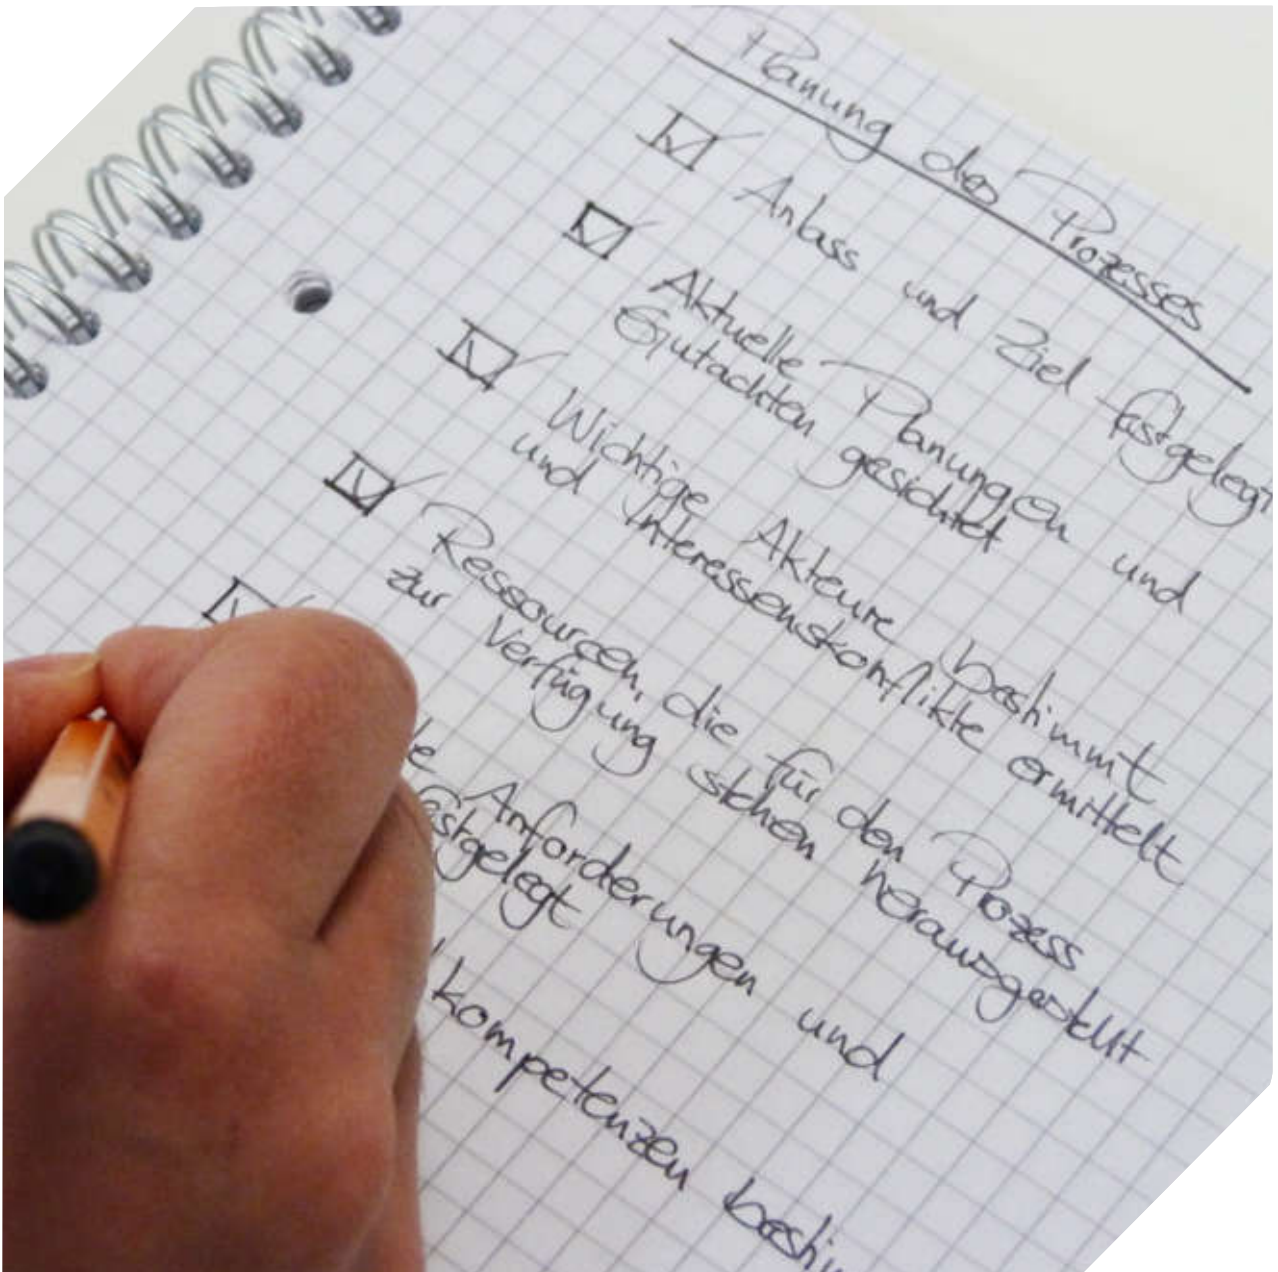 Planung des Prozesses
Anlass und Ziel festgelegt
Aktuelle Planungen und
Gutachten gesichtet
Wichtige Akteure bestimmt
und Interessenskonflikte ermittelt
Ressourcen, die für den Prozess
zur Verfügung stehen herausgestellt
Anforderungen und
festgelegt
kompetenzen